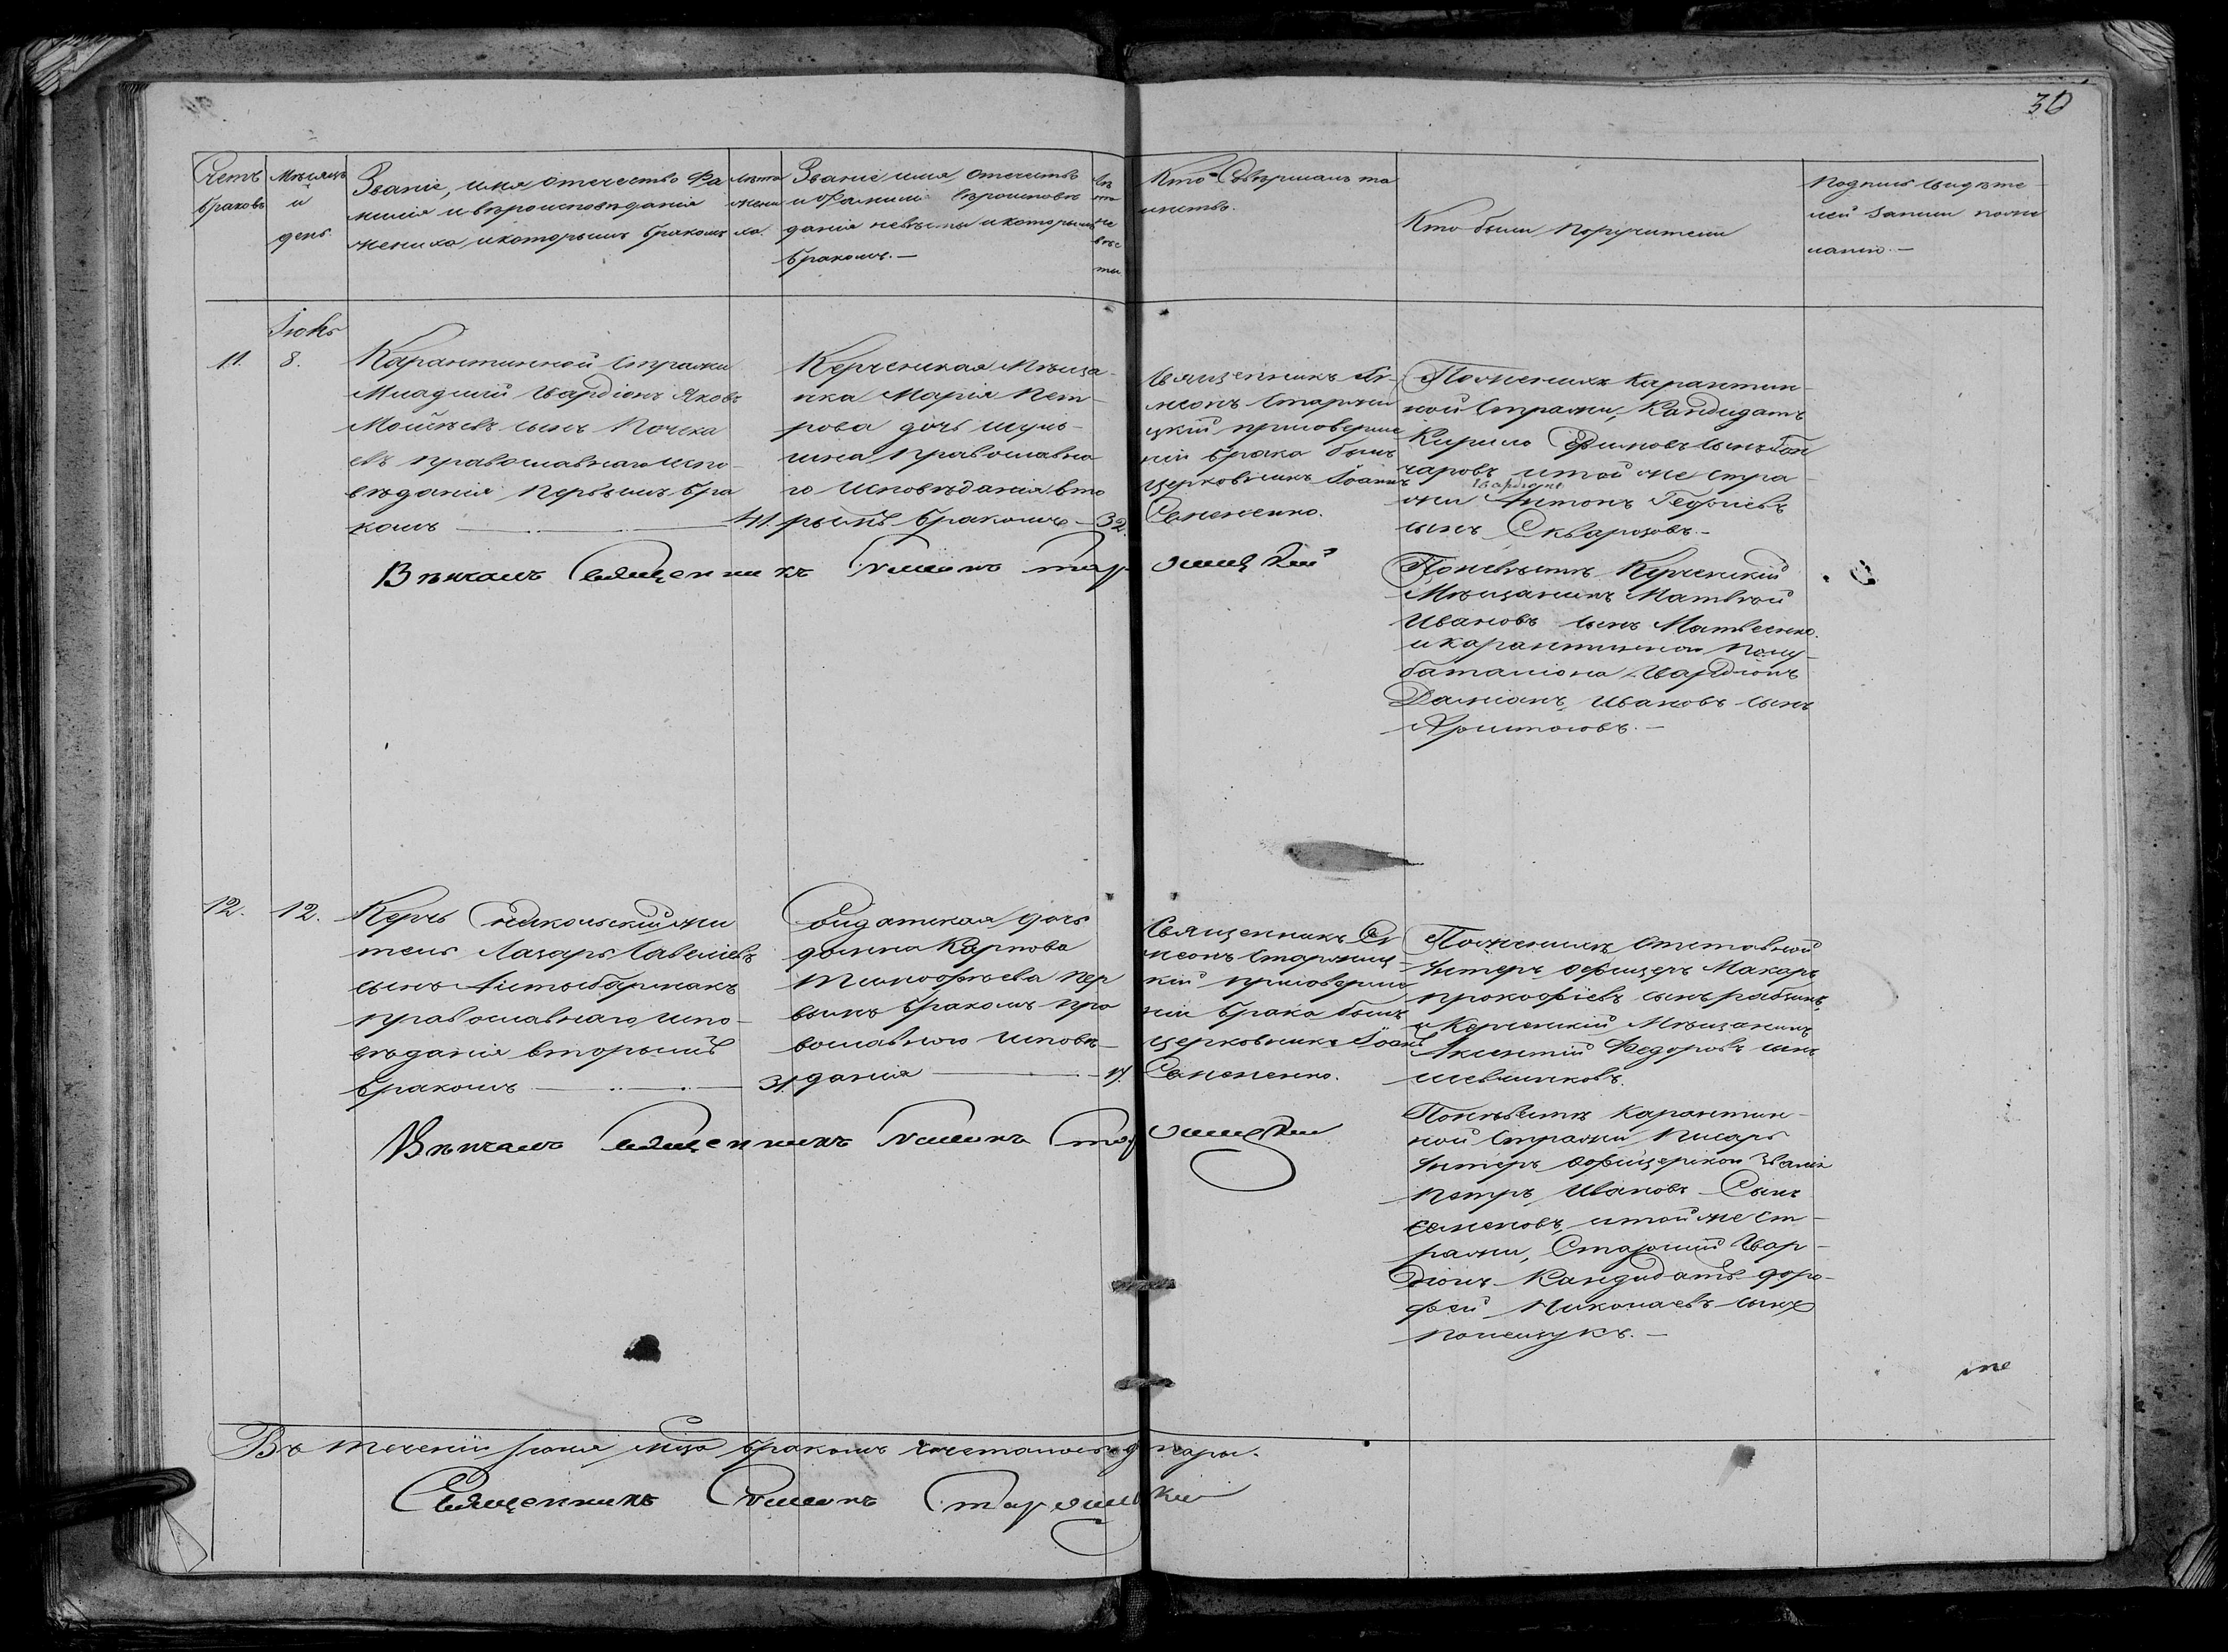 30
Счетъ
браковъ
Мѣсяцъ
и
день
Званіе, имя отечество Фа
милія и вѣроисповѣданія
жениха и которымъ бракомъ
Лѣта
жени
ха.
Званіе имя, отечество
и Фамилія вѣроисповѣ
данія невѣсты и которымъ
бракомъ.—
Лѣ
та
не
вѣс
ты
Кто Совершалъ та
инство.
Кто были Поручители
Подпись свидѣте-
лей записи по же
ланію.—
Іюнь
11.
8.
Карантинной Стражи
Младшій Гвардіонъ Яковъ
Моисѣевъ сынъ
евъ православнаго испо-
вѣданія первымъ бра
комъ
41.
Керченская Мѣща-
нка Марія Пет-
рова дочь
православна
го исповѣданія вто
рымъ бракомъ
32.
Священникъ Си-
меонъ
цкій при совершe
ніи брака былъ
церковникъ Іоаннъ
Семененко.
По женихѣ Карантин-
ной Стражи, Кандидатъ
Кирило сынъ Гон
чаровъ и той же стра
Гвардіонъ
жи Антонъ Георгіевъ
сынъ Скварозовъ.—
По невѣстѣ Керченскій
Мѣщанинъ Матвѣй
Ивановъ сынъ Матвеенко
и карантинной Полу-
баталіона Гвардіонъ
Даміанъ Ивановъ сынъ
.—
Вѣнчалъ Священникъ Симеонъ
12.
12.
Керчь Еникольскій жи
тель Лазарь Савеліевъ
сынъ
православнаго испо-
вѣданія вторымъ
бракомъ
31.
Солдатская дочь
домна Карпова
Тимофѣева пер
вымъ бракомъ пра
вославного исповѣ-
данія
17.
Священникъ Си
меонъ
кій при соверше
ніи брака былъ
церковникъ Іоаннъ
Семененко.
По женихѣ Отставной
Унтеръ офицеръ Макаръ
прокофіевъ сынъ
и Керченскій Мѣщанинъ
Аксентій Федоровъ сынъ
По невѣстѣ Карантин-
ной Стражи Писарь
Унтеръ офицерскои званія
Петръ Ивановъ Сынъ
Семеновъ, и той же ст-
ражи, Старшій Гвар-
діонъ Кандидатъ доро-
фей Николаевъ сынъ
Полещукъ.—
Вѣнчалъ Священникъ Симеонъ
Въ теченіи Іюня мца бракомъ сочеталось пары.
Священникъ Симеонъ